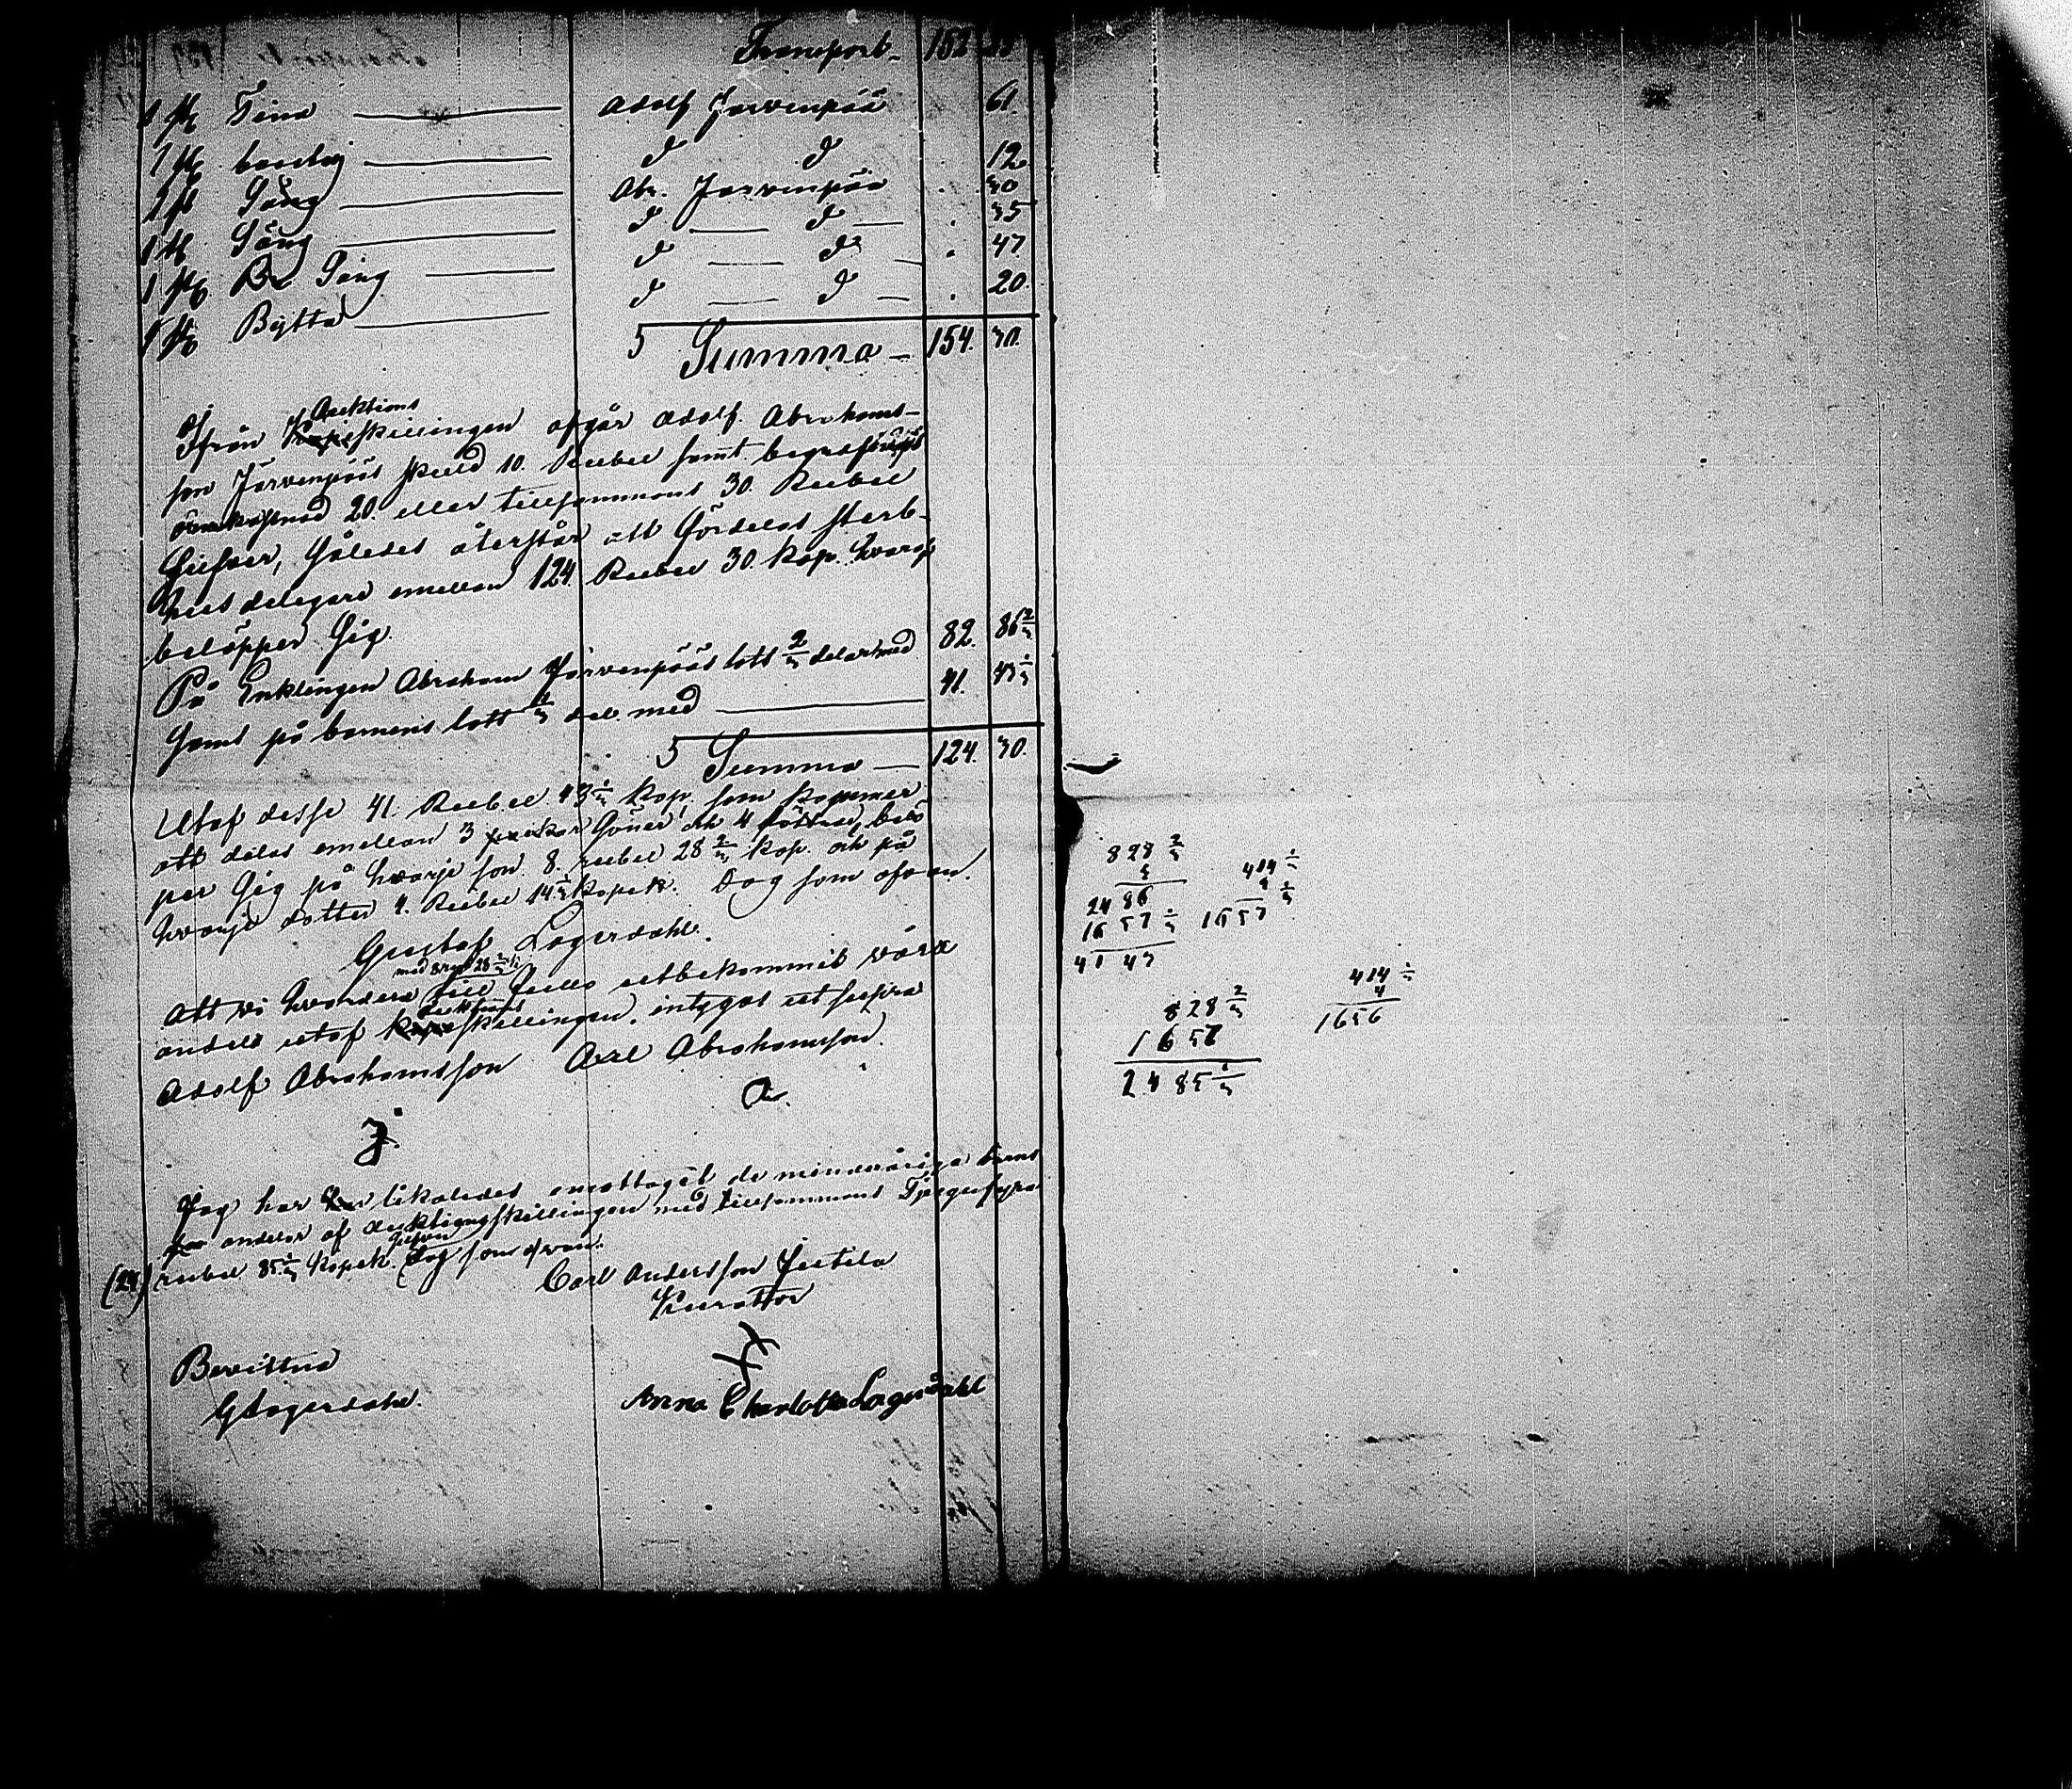 Transport 152
1 st Tina Adolf Jarvenpää 61.
1 st d d 12.
1 st Säng Abr. Jarvenpää 30
1 st Säng d d 35
1 st Säng d d 47.
1 st Bytta d d 20.
S Summa 154. 30.
Auktions
Ifrån skillingen afgår Adolf Abrahams-
son Järvenpääs skuld 10. Rubel samt begrafnings
omkostnad 20. eller tillsammans 30. Rubel
Silfver, Således återstår att fördelas sterb-
hus delegare emellan 124 Rubel 30. kop. hvaraf
belöpper Sig.
På Enklingen Abraham Järvenpääs lott 2/3 delar med 82. 86 2/3
Samt på barnens lott 1/3 del. med 41. 43 1/3
S Summa 124. 30.
Utaf desse 41. Rubel 43 1/3 kop. som kommer
att delas emellan 3 Söner och 4 döttrar, belö
per Sig på hvarje son 8. rubel 28 2/3 kop. och på
hvarje dotter 4. Rubel 14 1/3 kopek. Dag som ofvan.
Gustaf Lagerdahl.
med 8 rub 28 2/3 k
Att vi hvardera till fullo utbekommit våra
auktions
andelar utaf skillingen, intygas ut supra
Adolf Abrahamsson Axel Abrahamsson.
Jag har likaledes emottagit de minderåriga barns
andelar af auktionsskillingen med tillsammans Tjugufyra
Silfver
(24) rubel 85 1/3 kopek. Dag som ofvan.
Carl Andersson Juttila
Kurattor
Bevittna
GLagerdahl. Anna Charlotta Lagerdahl
828 2/3
3
2486
1657 1/3
41 43
414 1/3
4 1/3
1657
828 2/3
1657
2485 1/3
414 1/3
4
1656